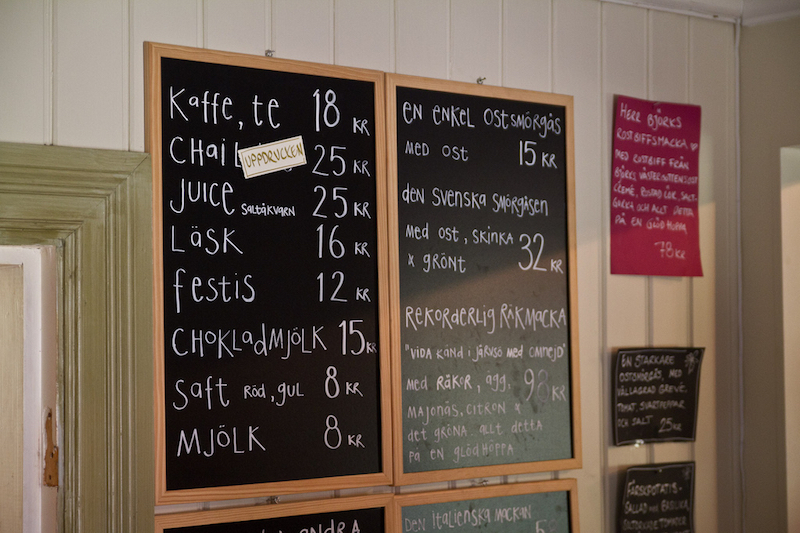 Kaffe, te 18 KR
CHAI UPPDRUCKEN 25 KR
JUICE SALTÅKVARN 25 KR
LÄSK 16 KR
festis 12 KR
CHOKLADMJÖLK 15 KR
Saft RÖD, GUL 8 KR
MJÖLK 8 KR
EN ENKEL OSTSMÖRGÅS
MED OST 15 KR
den SVENSKA SMÖRGÅSEN
MED OST, SKINKA
x GRÖNT 32 KR
REKORDERLIG RÄKMACKA
"VIDA KÄND i JÄRVSÖ MED OMNEJD"
MED RÄKOR, ägg, 98 KR
MAJONÄS, CITRON x
det GRÖNA. ALLT DETTA
PÅ EN GLÖDHOPPA
DEN ITALIENSKA MACKAN
HERR BJÖRKS
ROSTBIFFSMACKA
MED ROSTBIFF FRÅN
BJÖRKS, VÄSTERBOTTENSOST
CREME, ROSTAD LÖK, SALT-
GURKA OCH ALLT DETTA
PÅ EN GLÖDHOPPA
78 KR
EN STARKARE
OSTSMÖRGÅS, MED
VÄLLAGRAD GREVÉ
TOMAT, SVARTPEPPAR
OCH SALT 25 KR
FÄRSKPOTATIS-
SALLAD MED BASILIKA
SOLTORKADE TOMATER